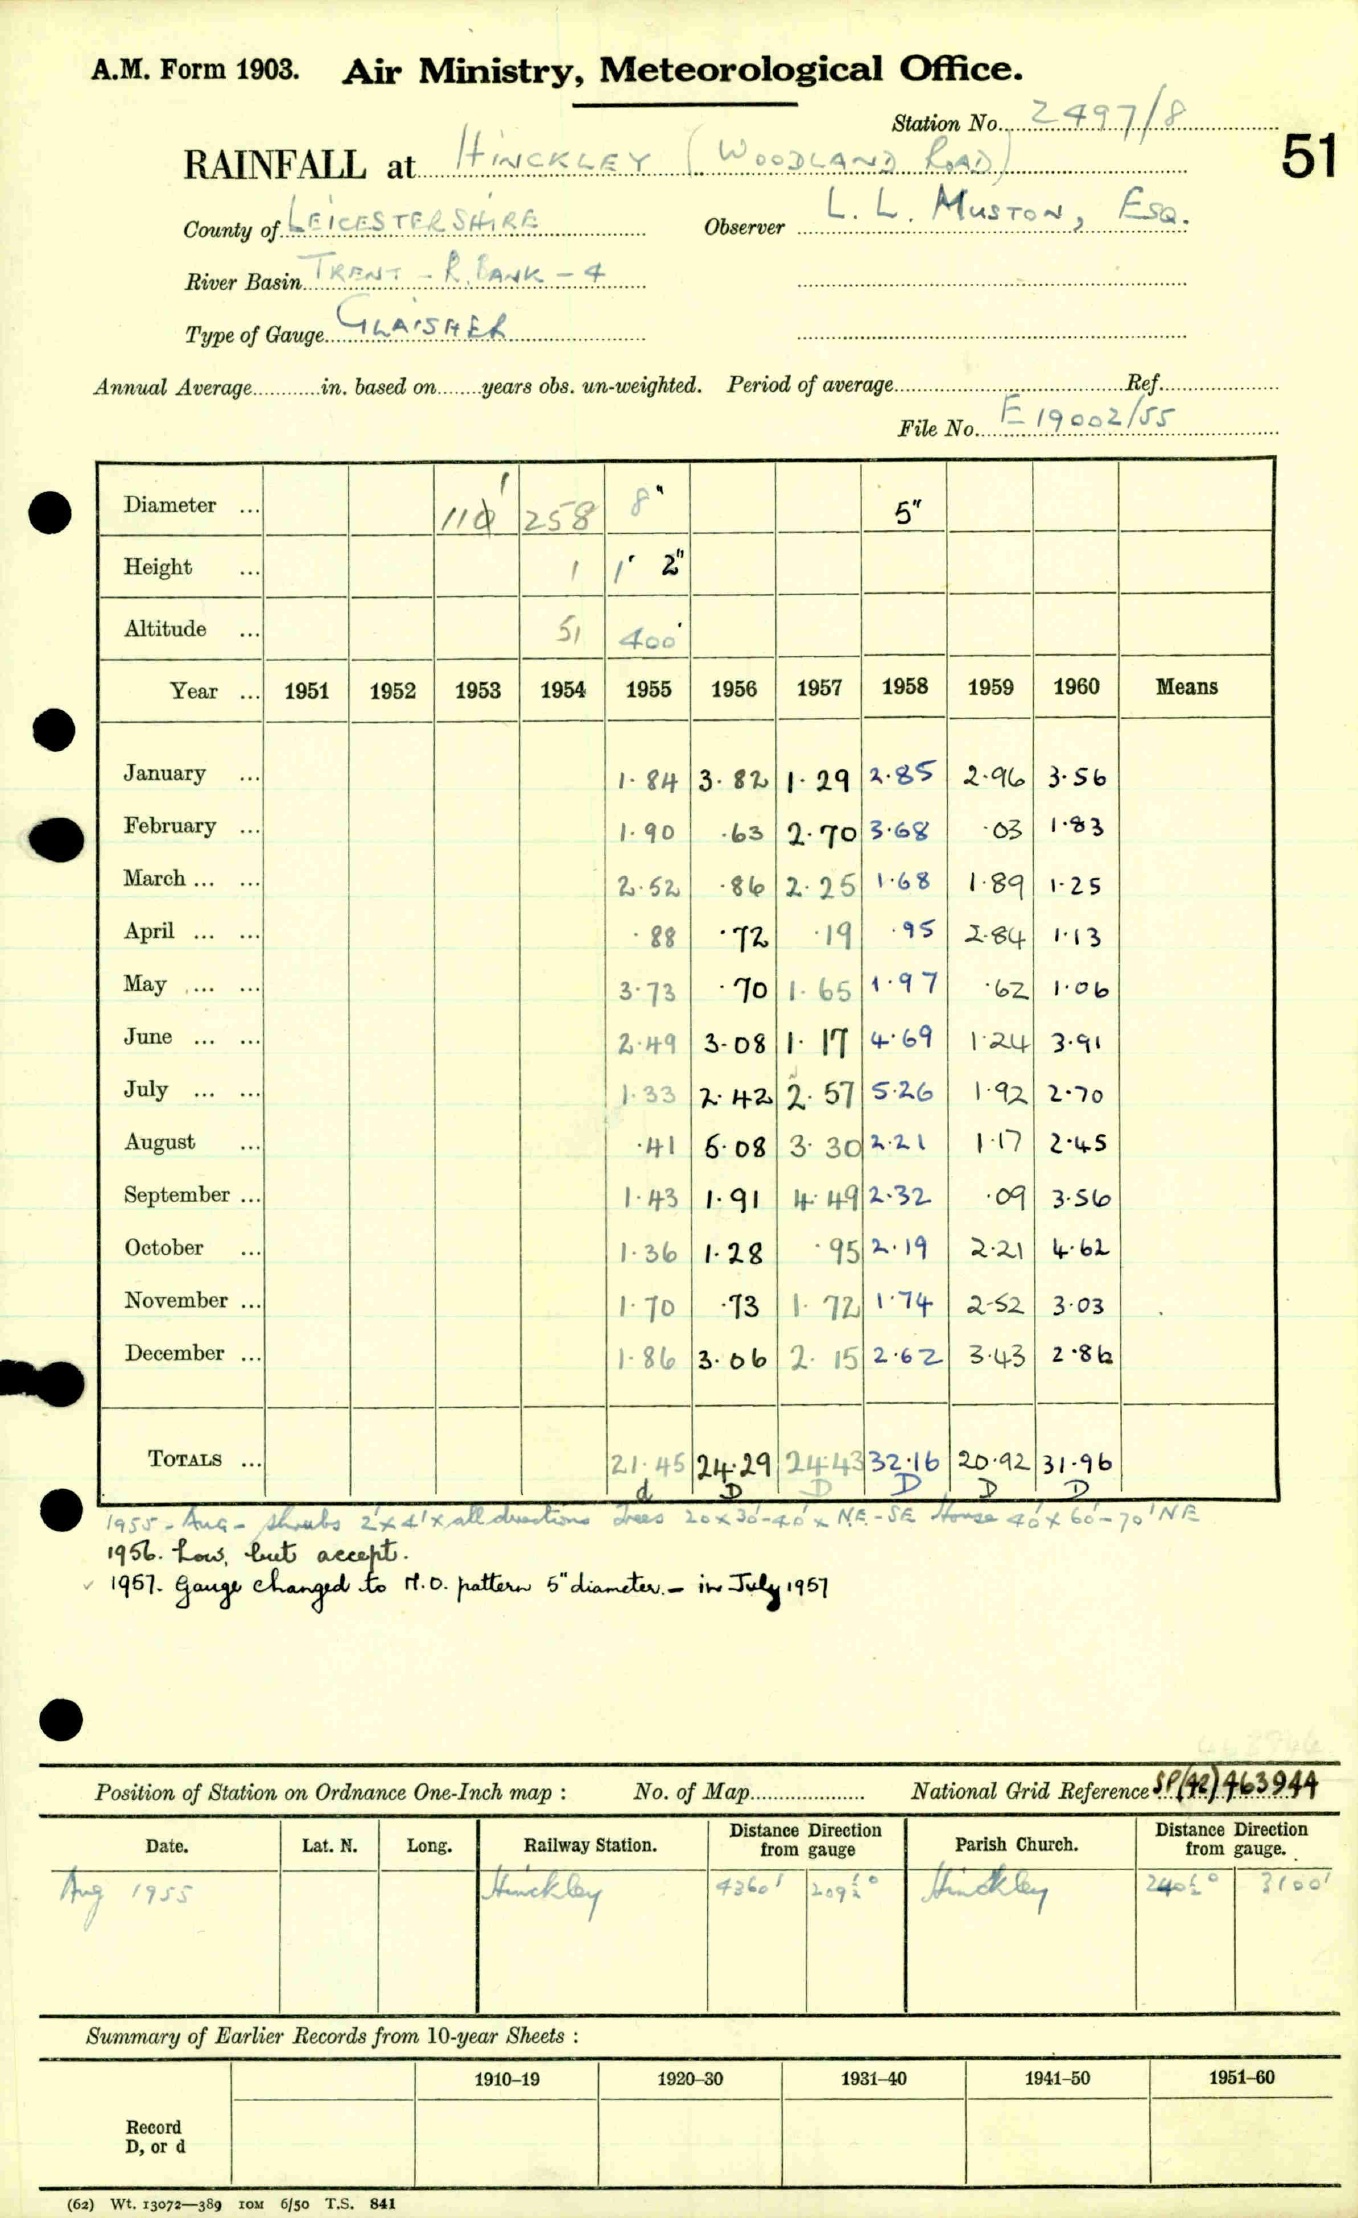 A.M. Form 1903. Air Ministry, Meteorological Office.
Station No. 2497/8
51
RAINFALL at HINCKLEY (WOODLAND ROAD)
County of LEICESTERSHIRE Observer L. L. MUSTON, ESQ.
River Basin TRENT - R. BANK - 4
Type of Gauge GLAISHER
Annual Average in. based on years obs. un-weighted. Period of average Ref.
File No. E 19002/55
Diameter ... 110 1 258 8" 5"
Height ... 1 1' 2"
Altitude ... 51 400'
Year ... 1951 1952 1953 1954 1955 1956 1957 1958 1959 1960 Means
January ... 1.84 3.82 1.29 2.85 2.96 3.56
February ... 1.90 .63 2.70 3.68 .03 1.83
March ... ... 2.52 .86 2.25 1.68 1.89 1.25
April ... ... .88 .72 .19 .95 2.84 1.13
May ... ... 3.73 .70 1.65 1.97 .62 1.06
June ... ... 2.49 3.08 1.17 4.69 1.24 3.91
July ... ... 1.33 2.42 2.57 5.26 1.92 2.70
August ... .41 5.08 3.30 2.21 1.17 2.45
September ... 1.43 1.91 4.49 2.32 .09 3.56
October ... 1.36 1.28 .95 2.19 2.21 4.62
November ... 1.70 .73 1.72 1.74 2.52 3.03
December ... 1.86 3.06 2.15 2.62 3.43 2.86
TOTALS ... 21.45 24.29 24.43 32.16 20.92 31.96
d D D D D D
1955 - Aug - shrubs 2' x 4' x all directions Trees 20 x 30'-40' x NE - SE House 40' x 60'-70' NE
1956. Low, but accept.
1957. Gauge changed to M.O. pattern 5" diameter. - in July 1957
Position of Station on Ordnance One-Inch map : No. of Map National Grid Reference SP(42)463944
Date. Lat. N. Long. Railway Station. Distance Direction from gauge Parish Church. Distance Direction from gauge.
Aug 1955 Hinckley 4360' 209½° Hinckley 240½° 3100'
Summary of Earlier Records from 10-year Sheets :
1910–19 1920–30 1931–40 1941–50 1951–60
Record
D, or d
(62) Wt. 13072—389 10M 6/50 T.S. 841